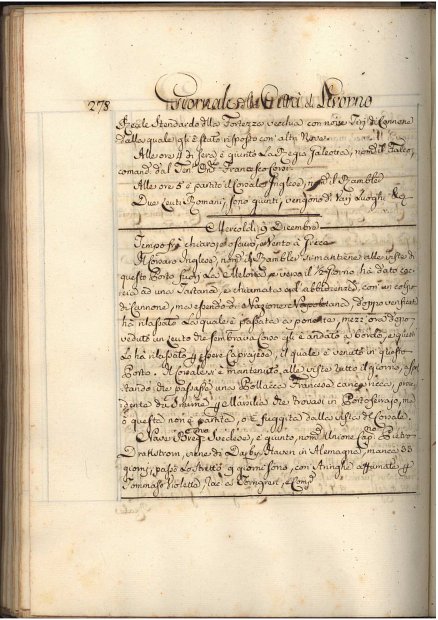 278 Giornale della Città di Livorno
Reale Stendardo della Fortezza vecchia con nove Tiri di Cannone
dalla quale gli è stato risposto con altri Nove
Alle ore 4 di sera è giunto La Regia Galeotta, nom.
comand. dal Ten. Francesco
Alle ore 5 è partito il Corsalo Inglese, nom. il Rambler
Due Leuti Romani, sono giunti, vengono di varj Luoghi
Mercoldì 9 Dicembre
Tempo chiaro, Vento a Greco
Il Corsaro Inglese, nom. il Rambler si mantiene alle viste di
questo Porto fuori La Meloria, e verso il ½ Giorno ha dato cac-
cia ad una Tartana, e chiamatas all'abbidienza, con un colpo
di Cannone, ma essendo di Nazione Napoletana, doppo verificata
ha rilasciato La quale è passata a ponente, mezz'ora dopo
veduto un Leuto che sembrava Corso gli è andato a bordo, e questo
Lo ha rilassato p essere Caprajese, il quale è venuto in questo
Porto. Il Corsale si è mantenuto alle viste tutto il giorno,
tando che passasse una Pollacca Francesa, prove-
dente da Smirne p Marsilia che trovasi in Portoferrajo, ma
o questa non è partita, o è fuggita dalla vista del Corsale,
Nave Svedese, è giunto, nom. l'Unione Cap. Pietro
Drathstrom, viene di Haven in Alemagna, manca 33
giorni, passò Lo Stretto 9 giorni sono, con Aringhe affumate p
Tommaso Violetta, Jac. a Horngren, e Comp.